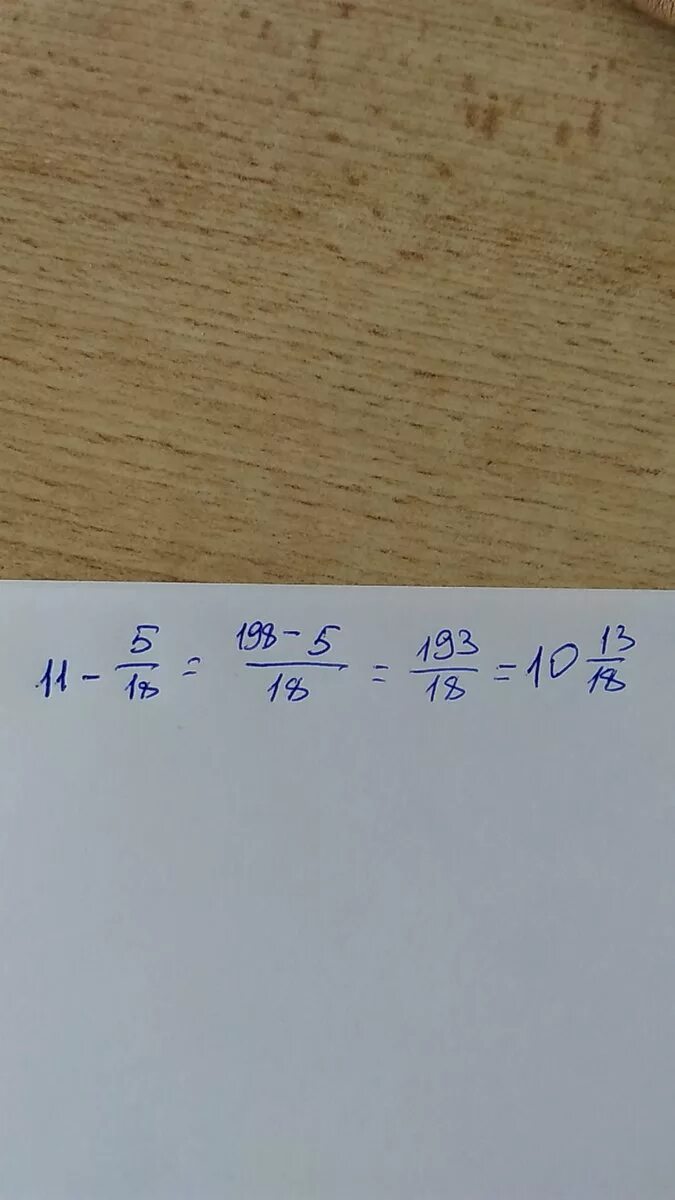 11 - 5/18 = (198 - 5)/18 = 193/18 = 10 13/18